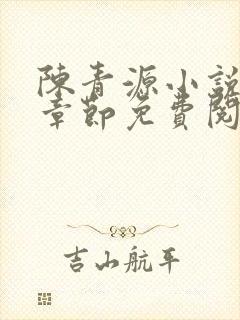 陳青源小說
章節免費閱
吉山航平